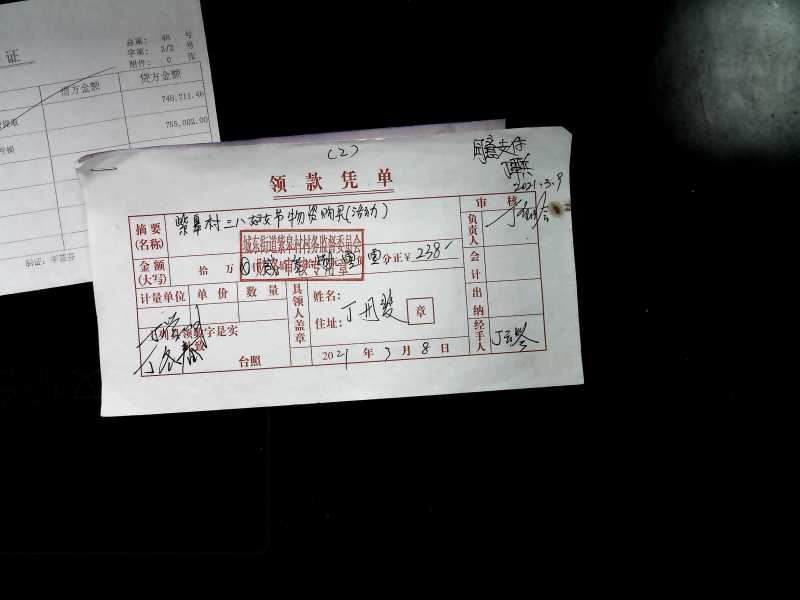 证
总第: 46 号
字第: 2/2 号
附件: 0 张
借方金额 贷方金额
748,711.46
755,002.00
(2)
同意支付
2021.3.9
领款凭单
审核
摘要(名称) 紫皋村三八妇女节物资购买(活动)
负责人
城东街道紫皋村村务监督委员会
财务审核专用章
金额(大写) 拾万 分正¥ 238
会计
计量单位 单价 数量 具领人盖章 姓名: 丁丹
住址: 章
出纳
列具领数字是实
台照
2021年3月8日
经手人 丁